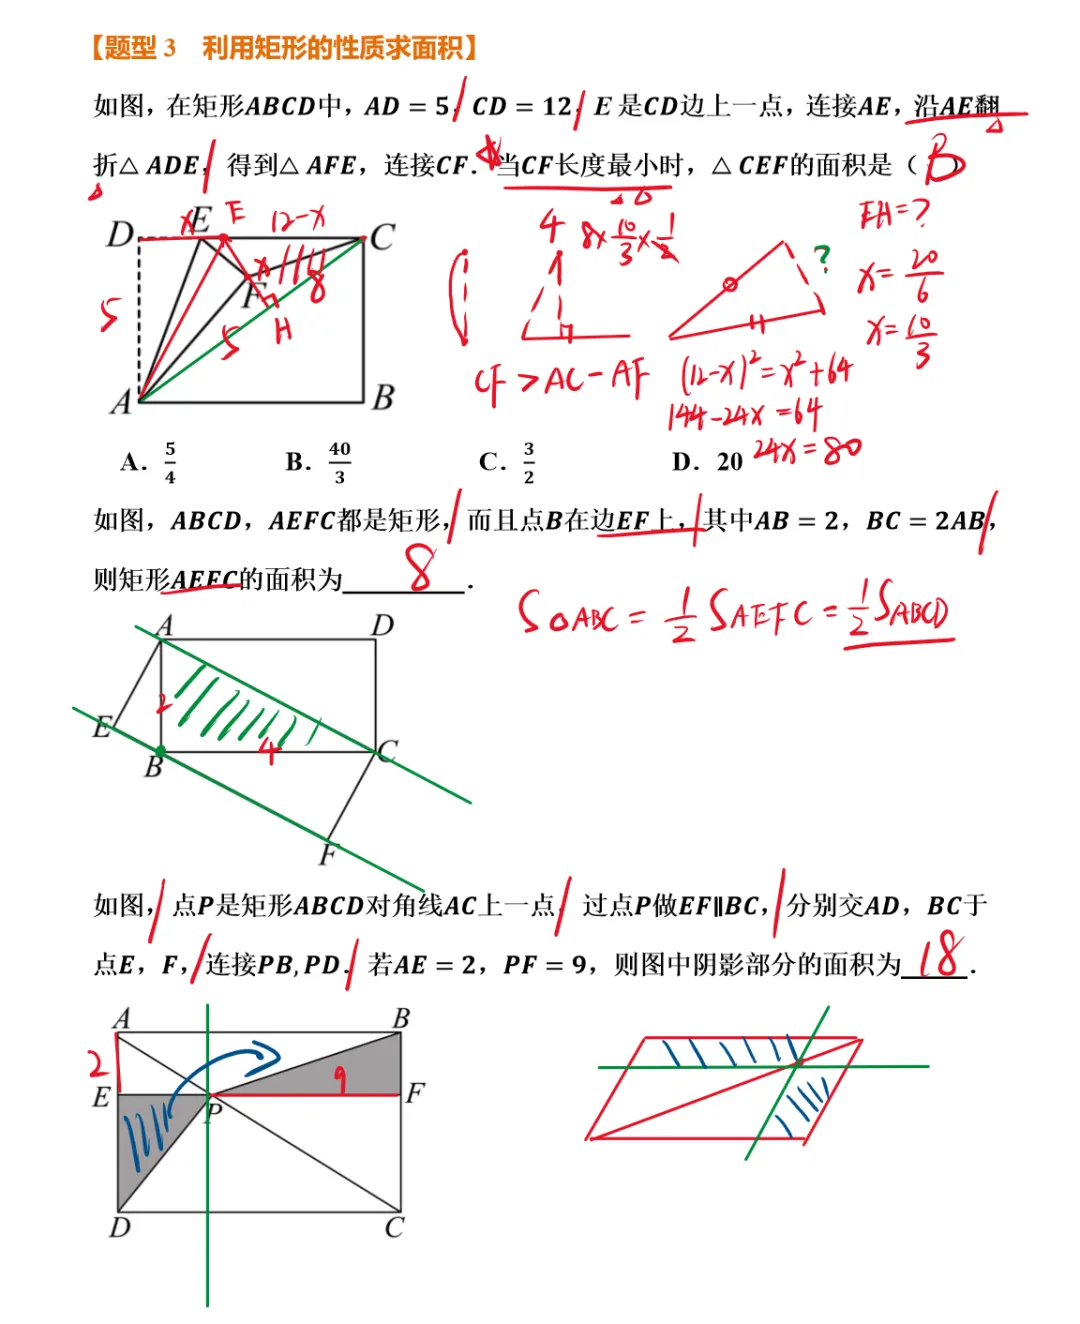 【题型 3　利用矩形的性质求面积】
如图，在矩形ABCD中，AD = 5，CD = 12，E 是CD边上一点，连接AE，沿AE翻
折△ ADE，得到△ AFE，连接CF．当CF长度最小时，△ CEF的面积是（ B ）
D x E E 12-x C
5 x F 8
5 H
A B
4 8×10/3×1/2
CF > AC - AF
?
(12-x)²=x²+64
144-24x =64
24x = 80
EH=?
x= 20/6
x= 10/3
A．5/4 B．40/3 C．3/2 D．20
如图，ABCD，AEFC都是矩形，而且点B在边EF上，其中AB = 2，BC = 2AB，
则矩形AEFC的面积为 8 ．
S△ABC = 1/2 SAEFC = 1/2 SABCD
A D
2
E 4
B C
F
如图，点P是矩形ABCD对角线AC上一点，过点P做EF∥BC，分别交AD，BC于
点E，F，连接PB, PD．若AE = 2，PF = 9，则图中阴影部分的面积为 18 ．
A B
2 9
E P F
D C